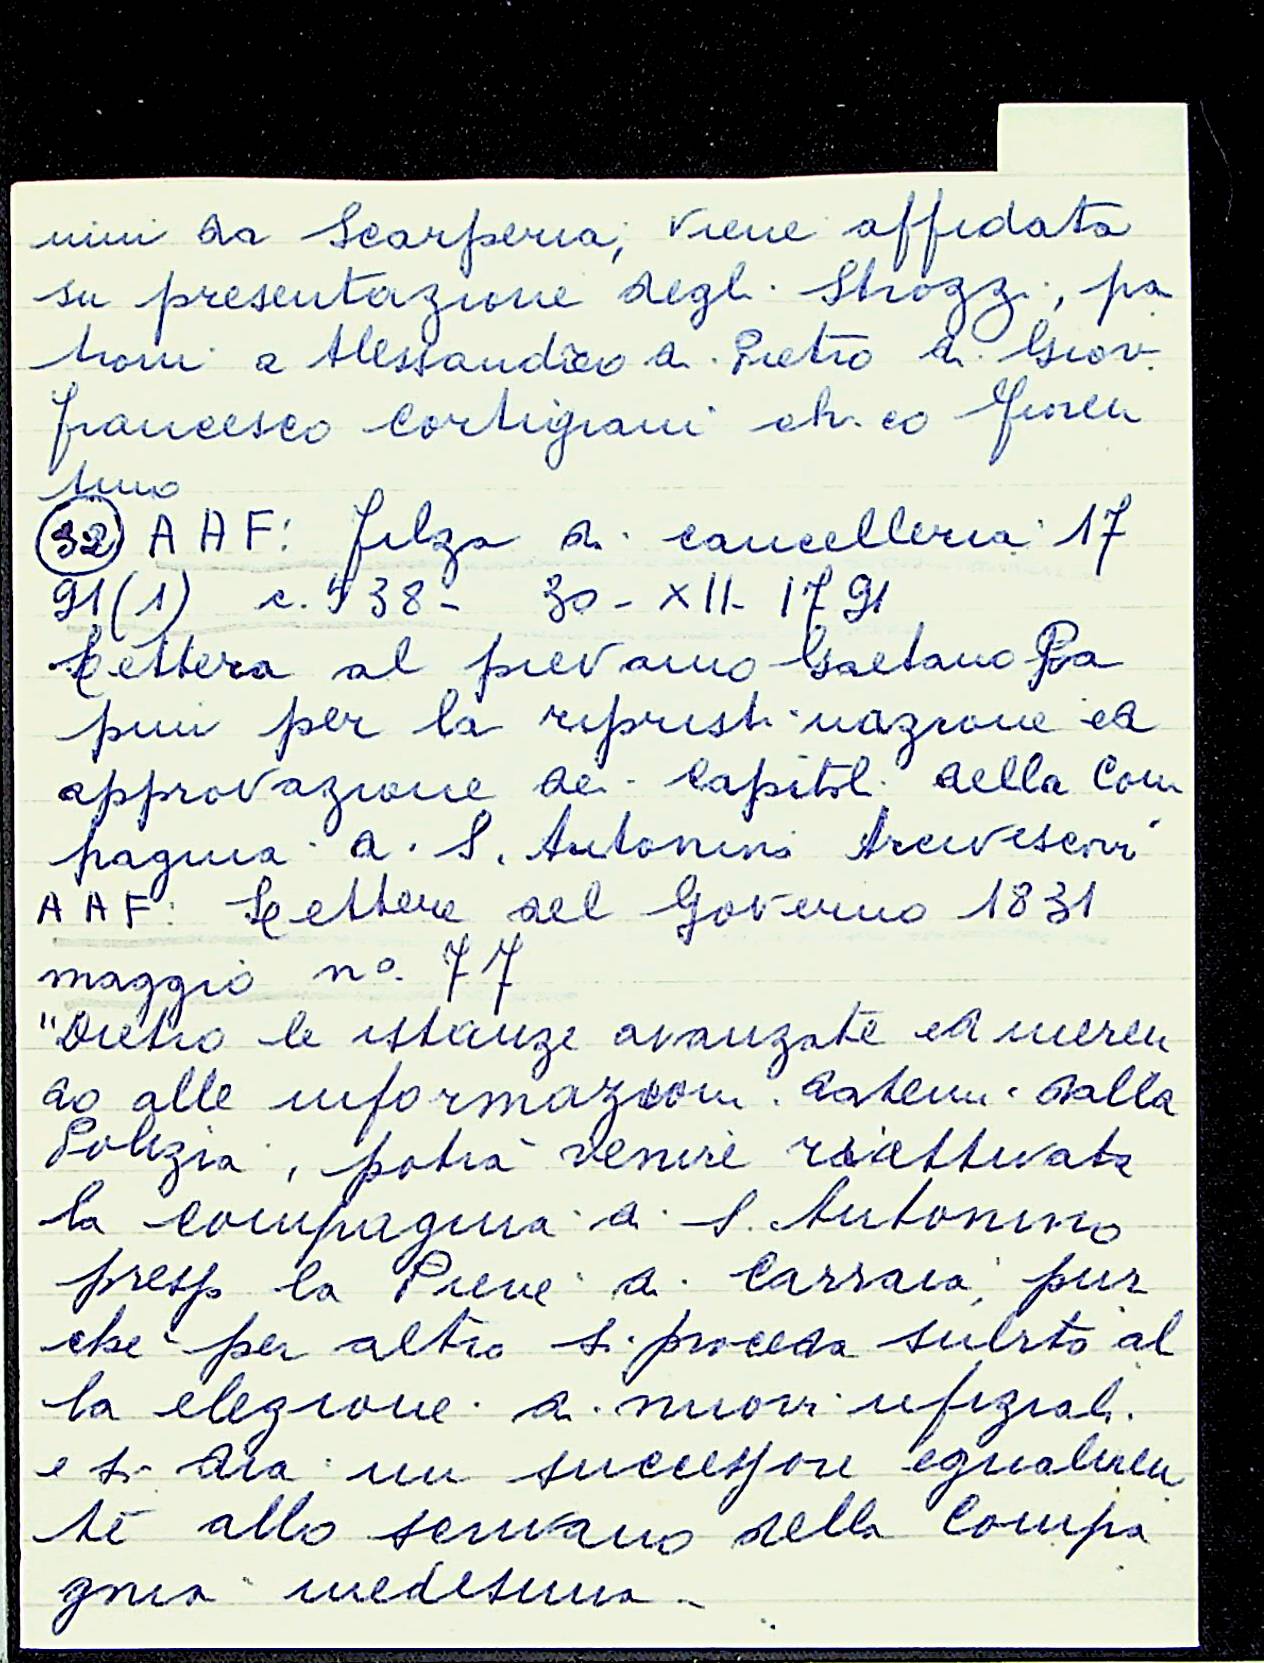 nini da Scarperia, viene affidata
su presentazione degli Strozzi, pa
troni a Alessandro di Pietro di Giov.
francesco Cortigiani ch.co fioren
tino
(32) AAF: filza di cancelleria 17
91(1) c. 538 - 30 - XII - 1791
Lettera al pievano Gaetano Pa
pini per la ripristinazione ed
approvazione dei Capitoli della Com
pagnia di S. Antonino Arcivescovo
AAF: Lettere del Governo 1831
maggio n°. 77
"Dietro le istanze avanzate ed ineren
do alle informazioni datemi dalla
Polizia, potrà venire riattivata
la compagnia di S. Antonino
presso la Pieve di Carraia, pur
chè per altro si proceda subito al
la elezione di nuovi ufiziali
e si dia un successore egualmen
te allo scrivano della Compa
gnia medesima -